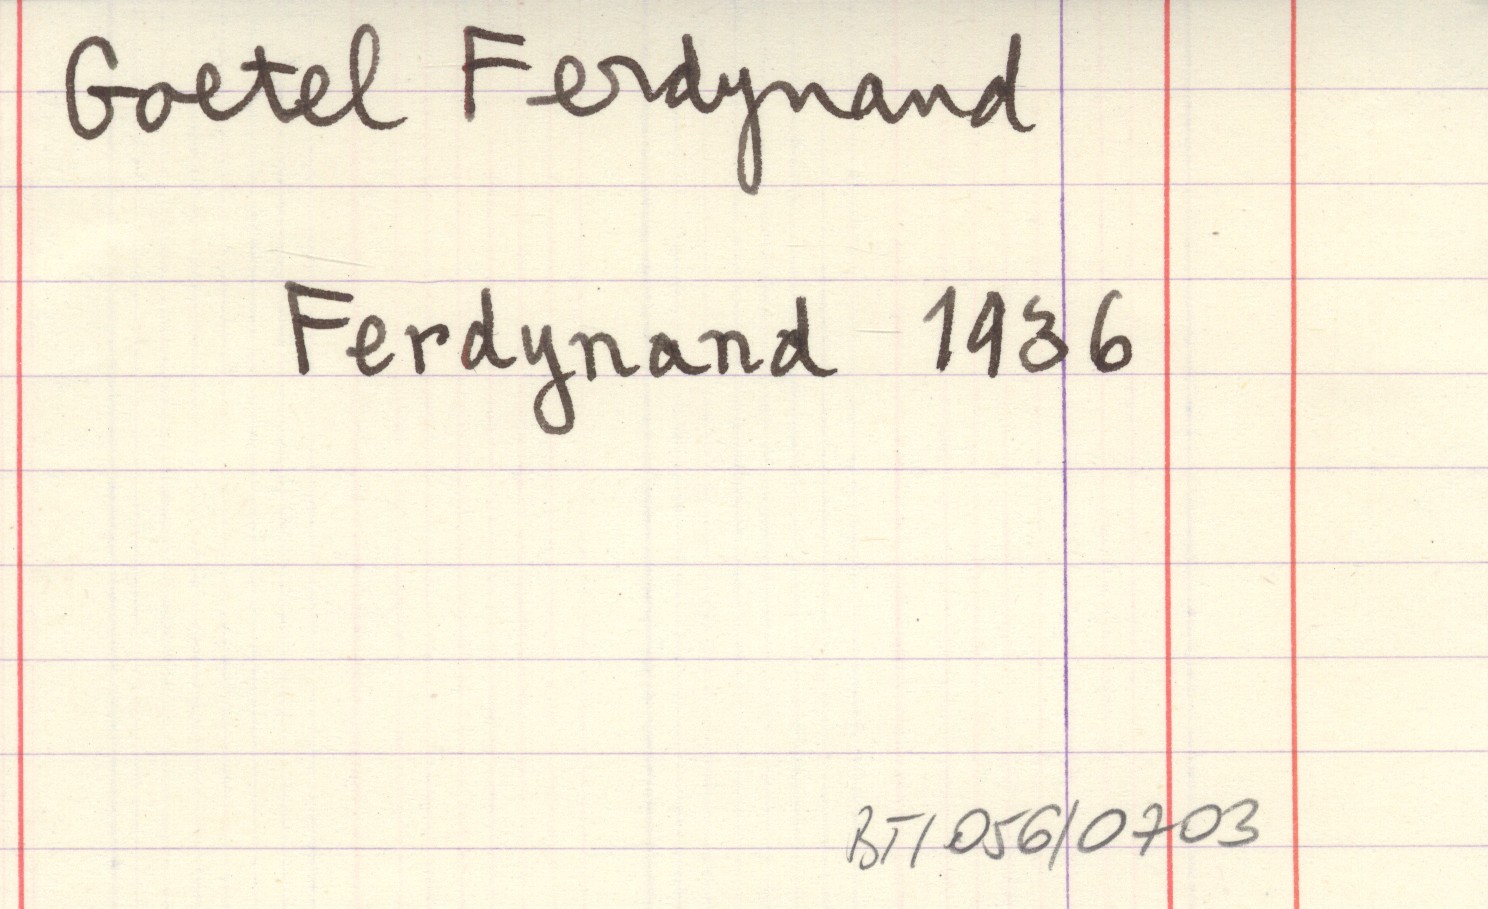 Goetel Ferdynand
Ferdynand 1936
BT/056/0703